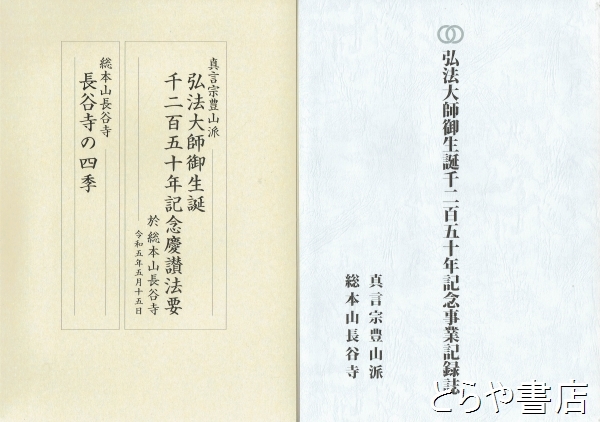 弘法大師御生誕千二百五十年記念事業記録誌
真言宗豊山派
総本山長谷寺
真言宗豊山派
弘法大師御生誕
千二百五十年記念慶讃法要
於 総本山長谷寺
令和五年五月十五日
総本山長谷寺
長谷寺の四季
とらや書店